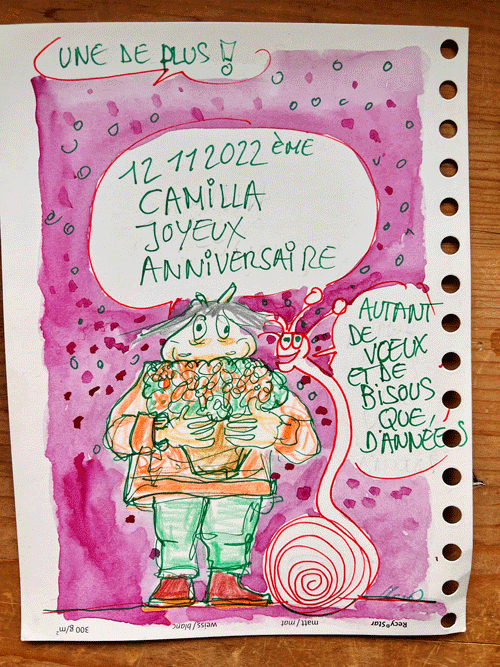 UNE DE PLUS !
12 11 2022 ÈME
CAMILLA
JOYEUX
ANNIVERSAIRE
AUTANT
DE
VŒUX
ET DE
BISOUS
QUE
D'ANNÉES
300 g/m²
weiss/blanc
matt/mat
Recy★Star